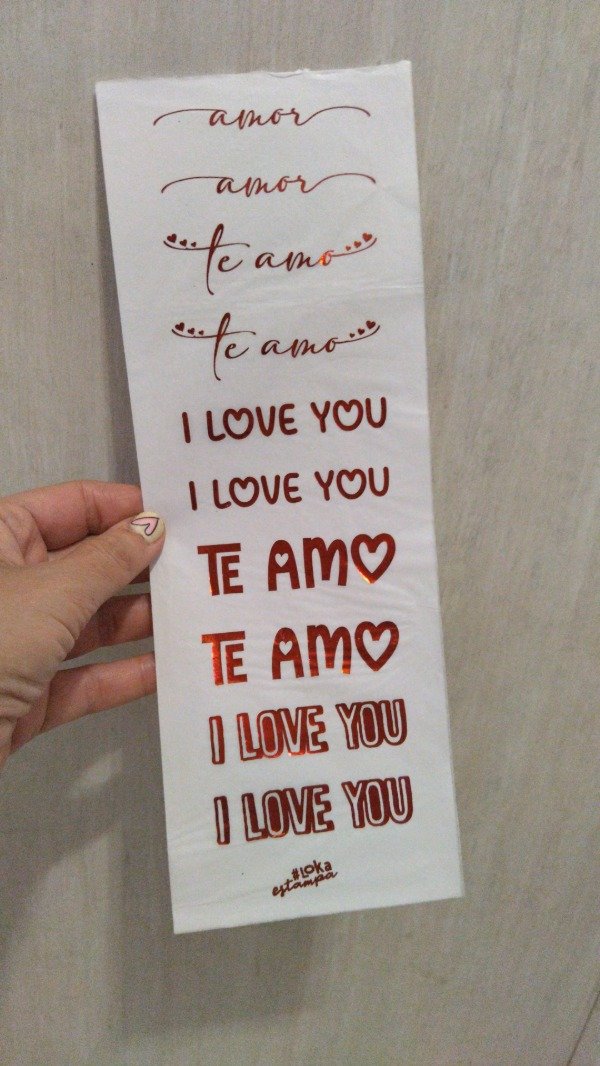 amor
amor
te amo
te amo
I LOVE YOU
I LOVE YOU
TE AMO
TE AMO
I LOVE YOU
I LOVE YOU
#LOKa
estampa